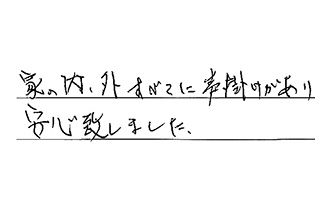 家の内、外すべてに声掛けがあり
安心致しました、